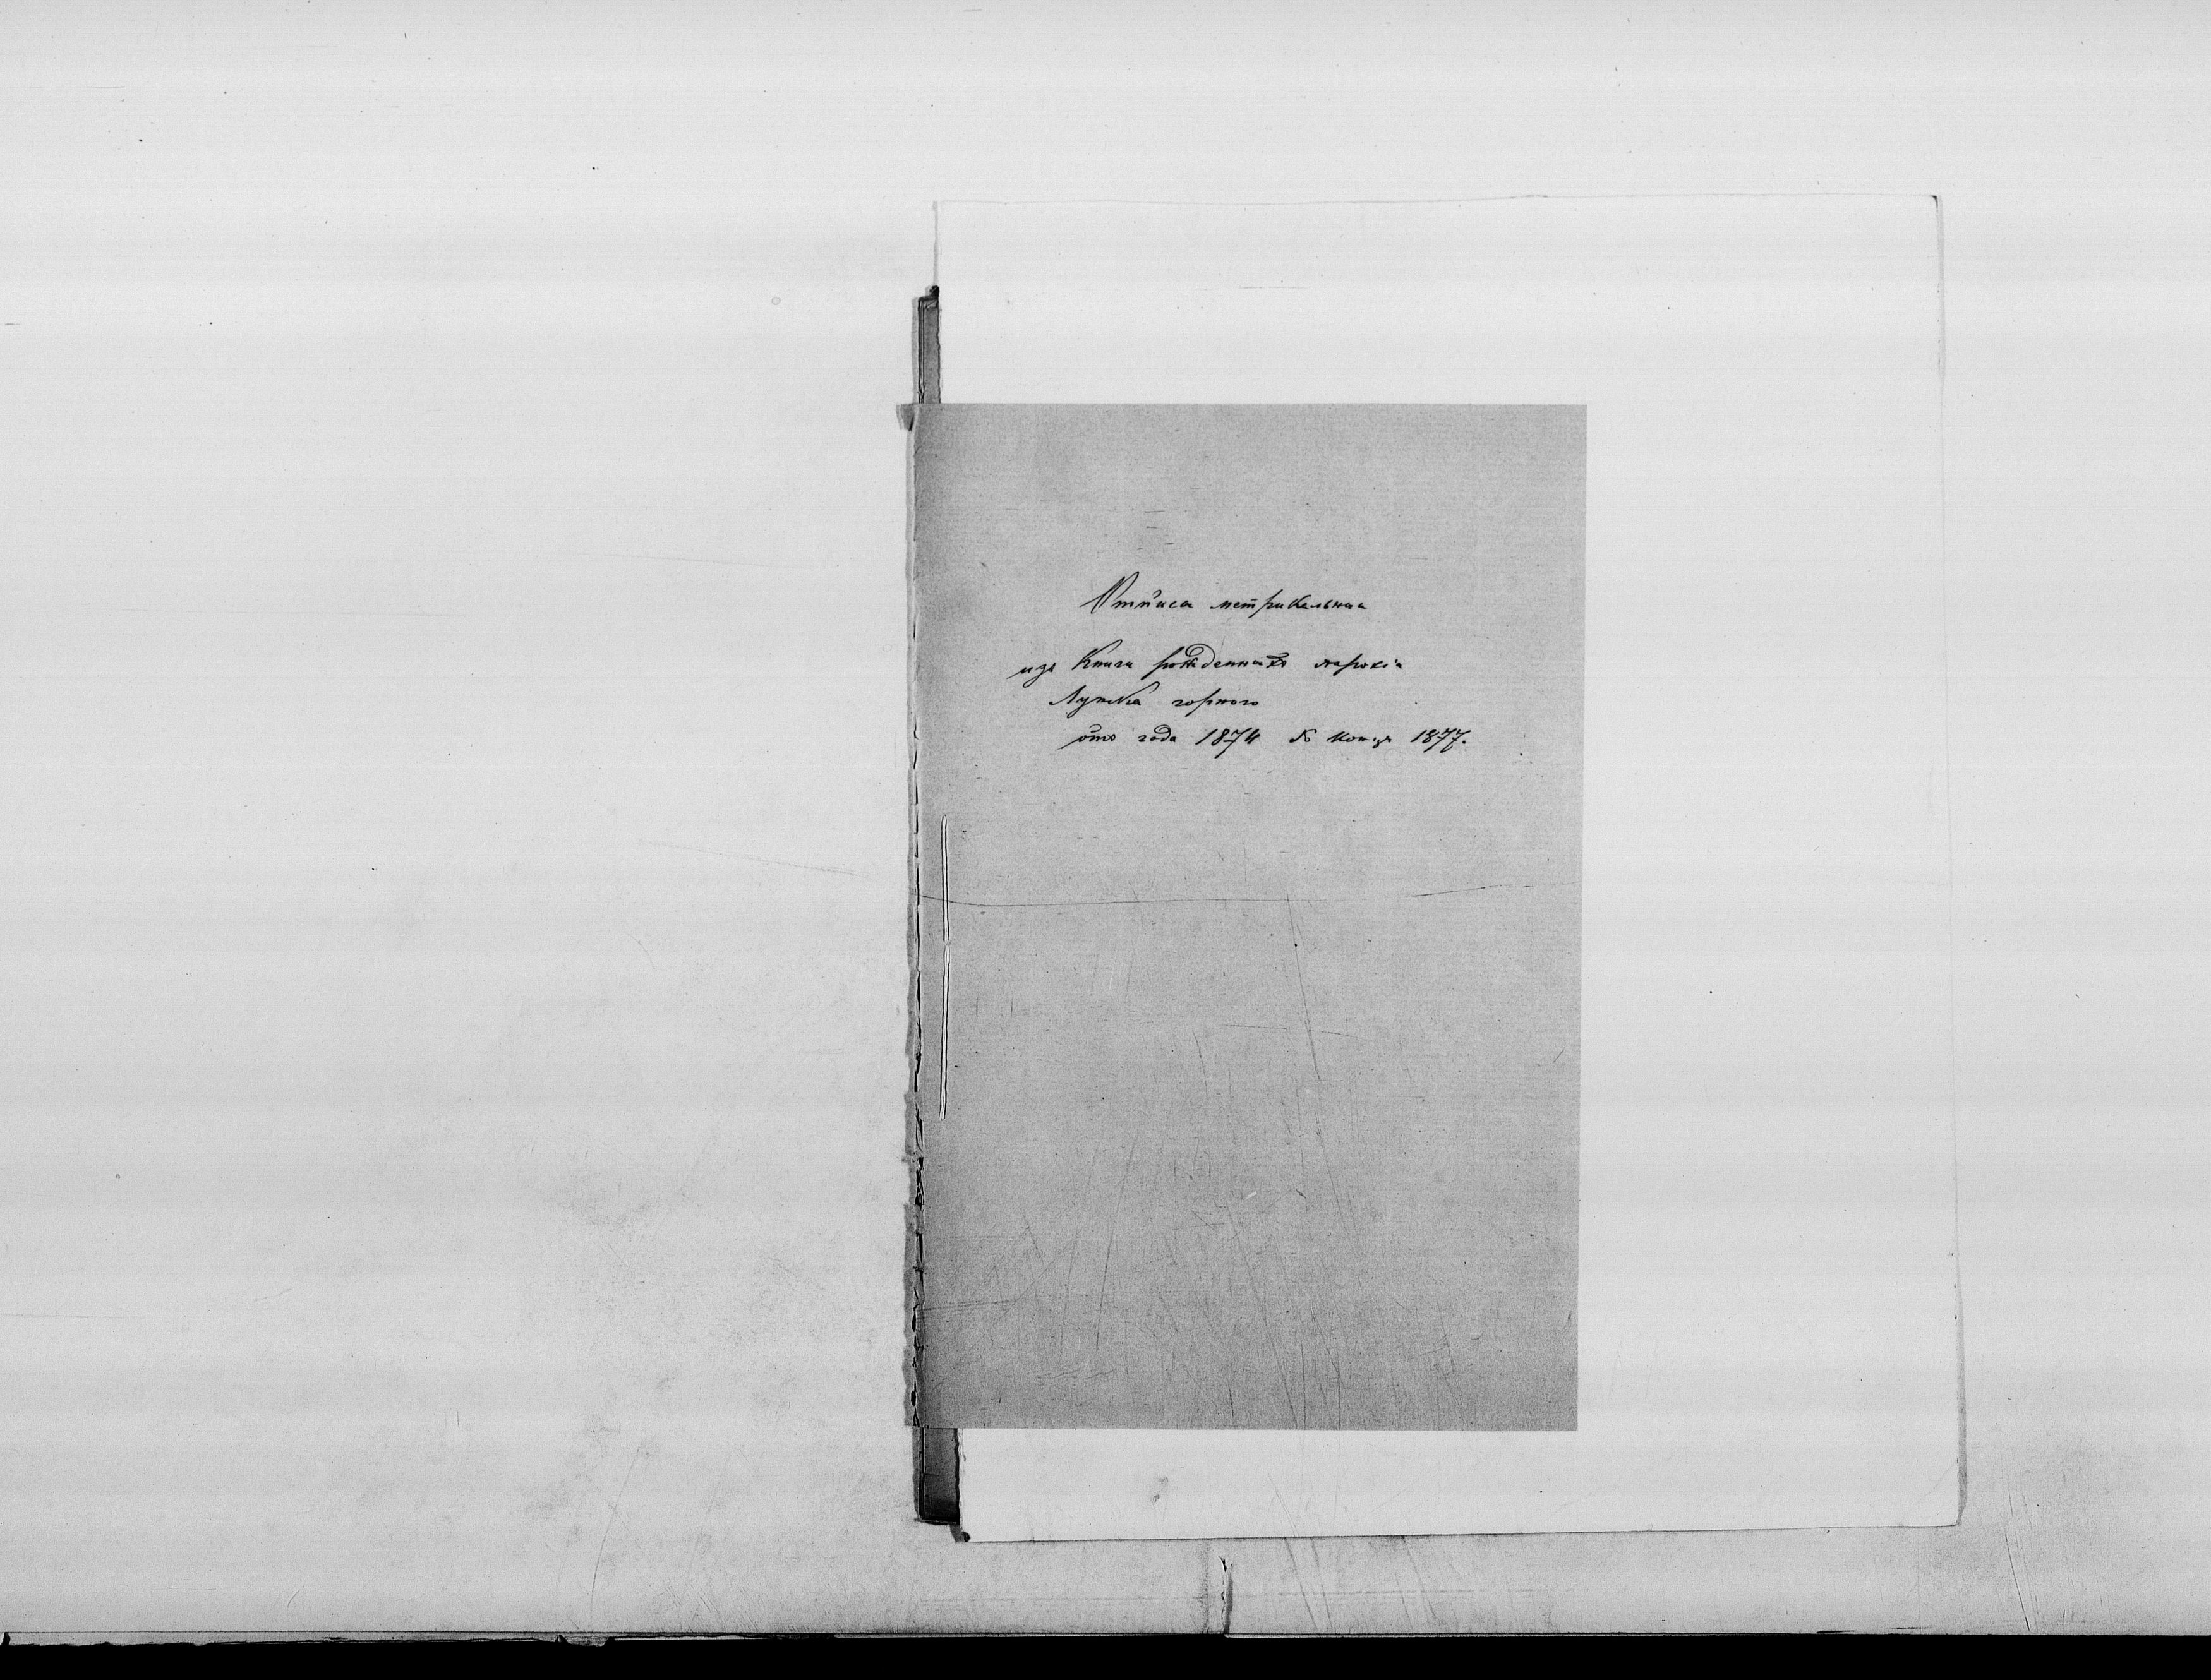 Отписа метрикальна
изъ Книги рожденныхъ парохіи
Лужка горного
отъ года 1874 до конця 1877.